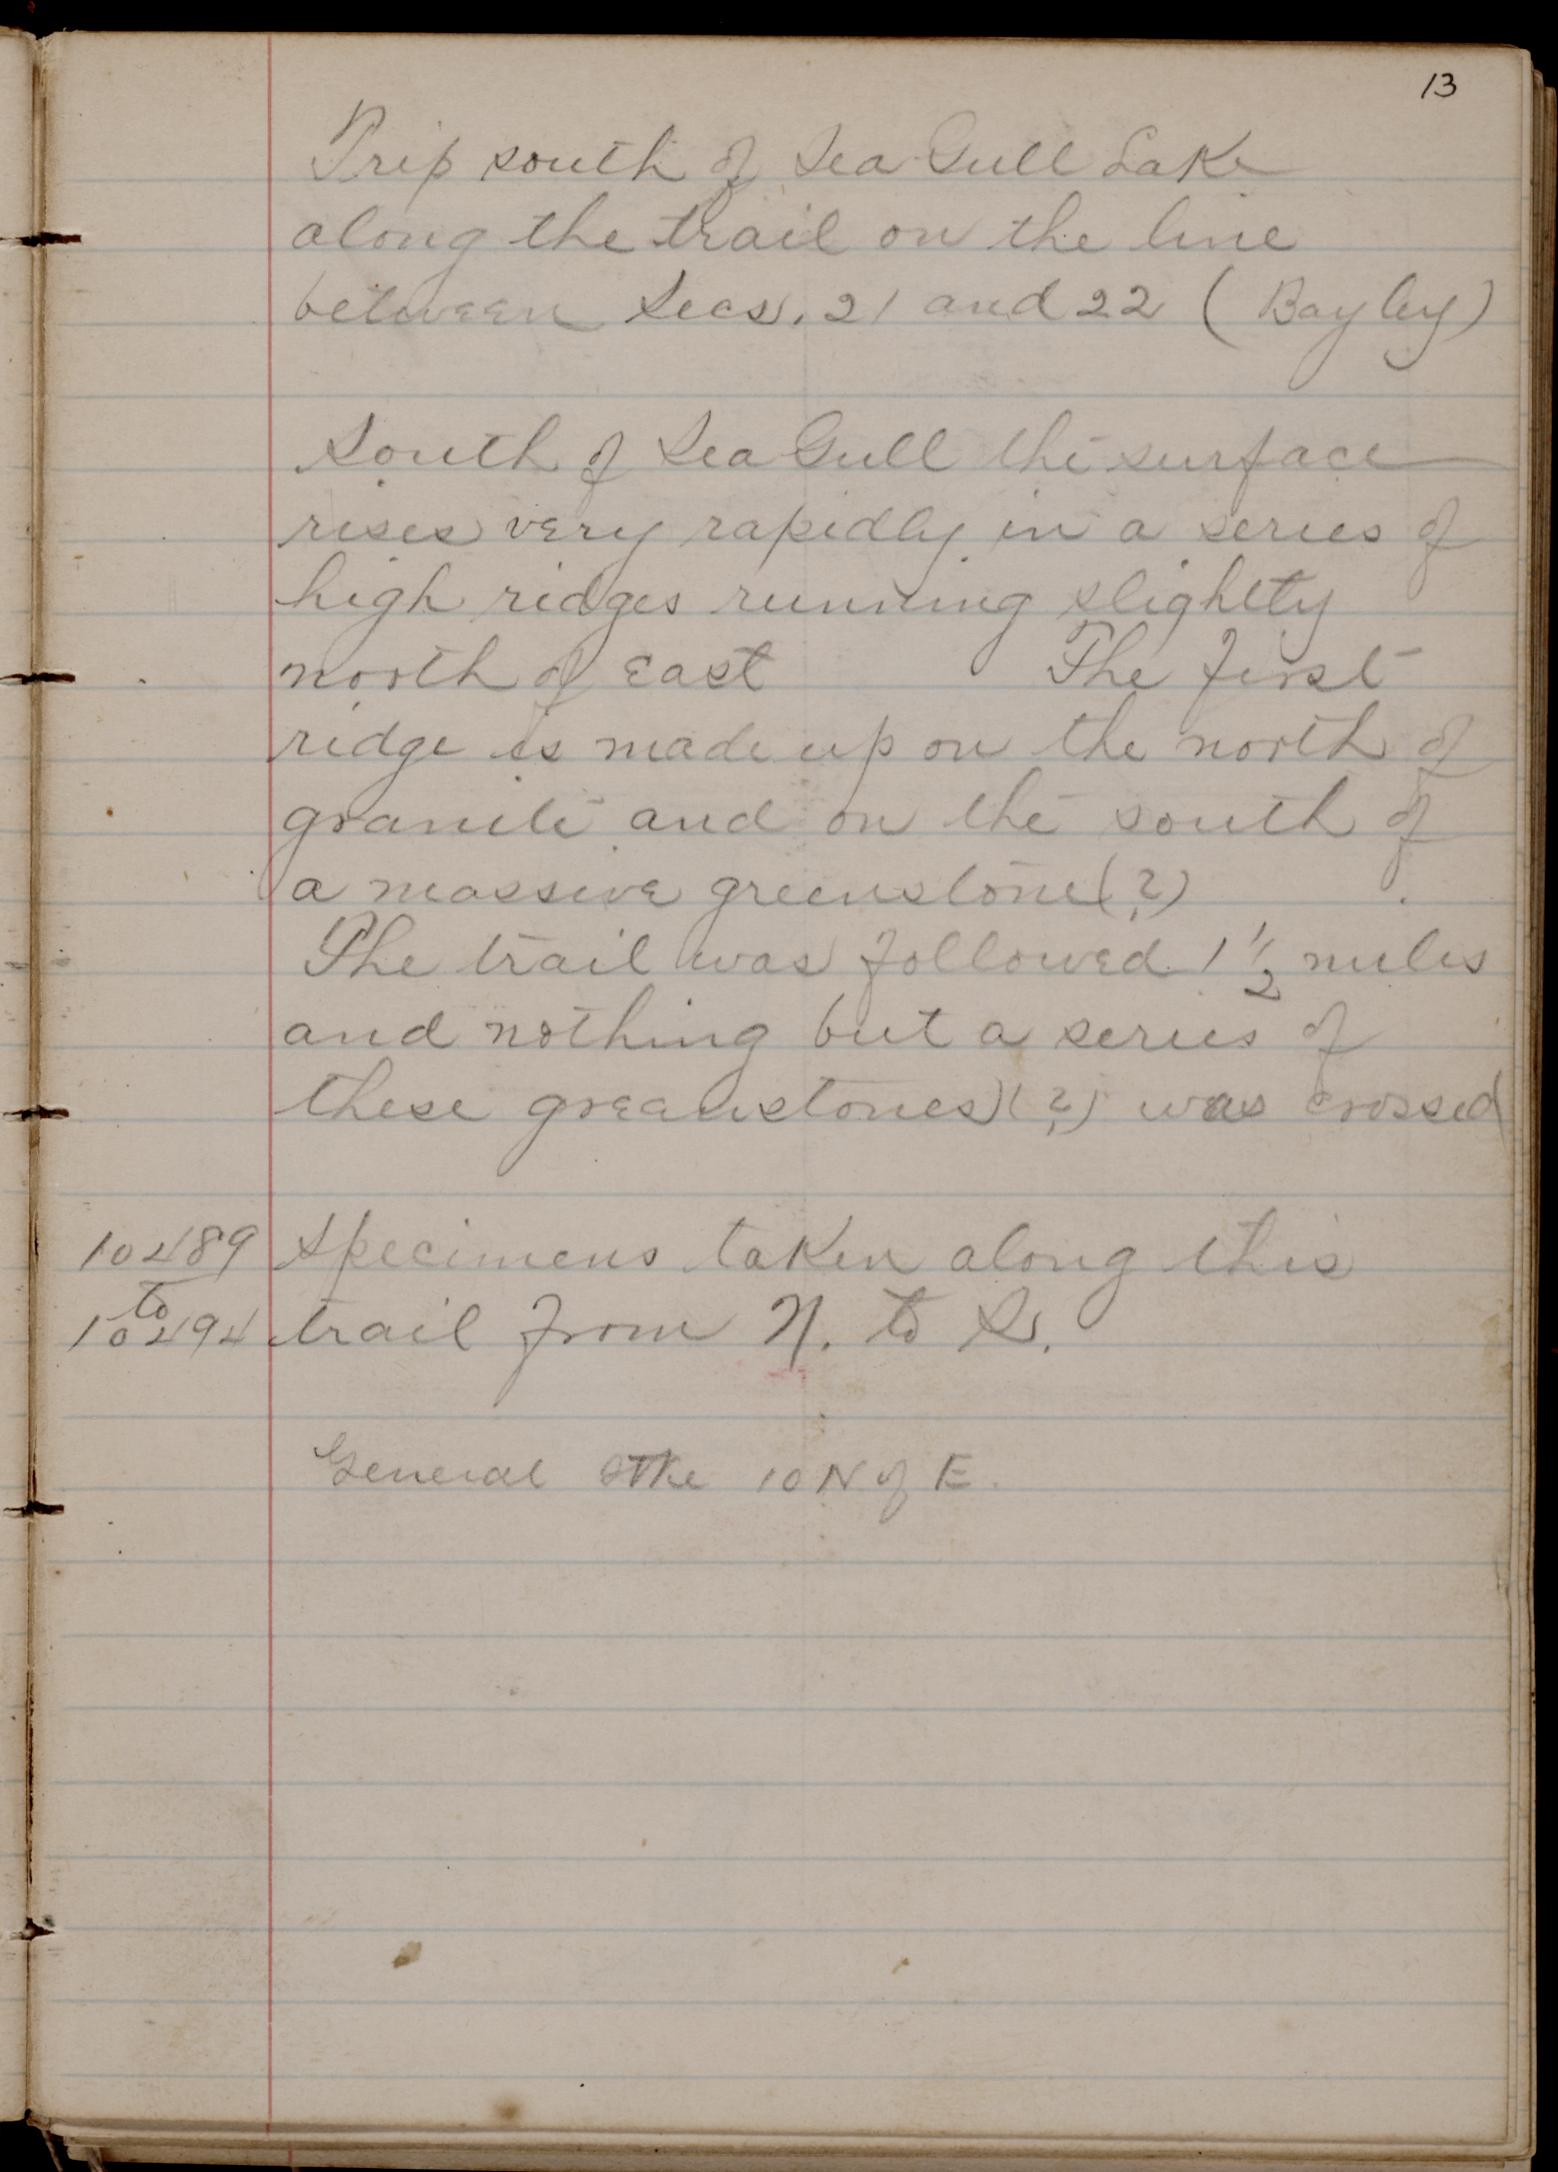 13
Trip south of Sea Gull Lake
along the trail on the line
between Secs. 21 and 22 (Bayley)
South of Sea Gull the surface
rises very rapidly in a series of
high ridges running slightly
north of east The first
ridge is made up on the north of
granite and on the south of
a massive greenstone(?)
The trail was followed 1 1/2 miles
and nothing but a series of
these greenstones(?) was crossed
10489 Specimens taken along this
to
10494 trail from N. to S.
General Stke 10 N of E.